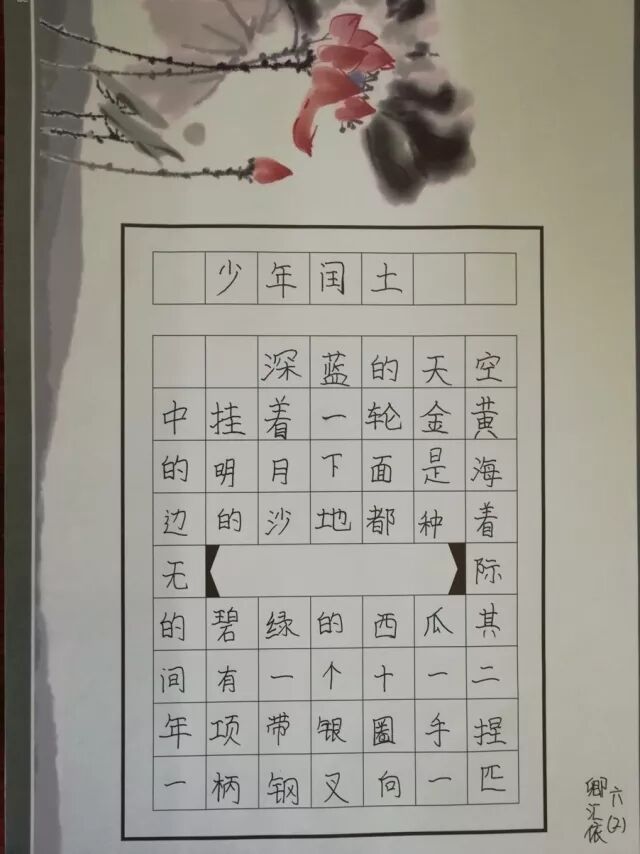 少年闰土
深蓝的天空
中挂着一轮金黄
的明月下面是海
边的沙地都种着
无际
的碧绿的西瓜其
间有一个十一二
年项带银圈手捏
一柄钢叉向一匹
六(2)
卿汇依